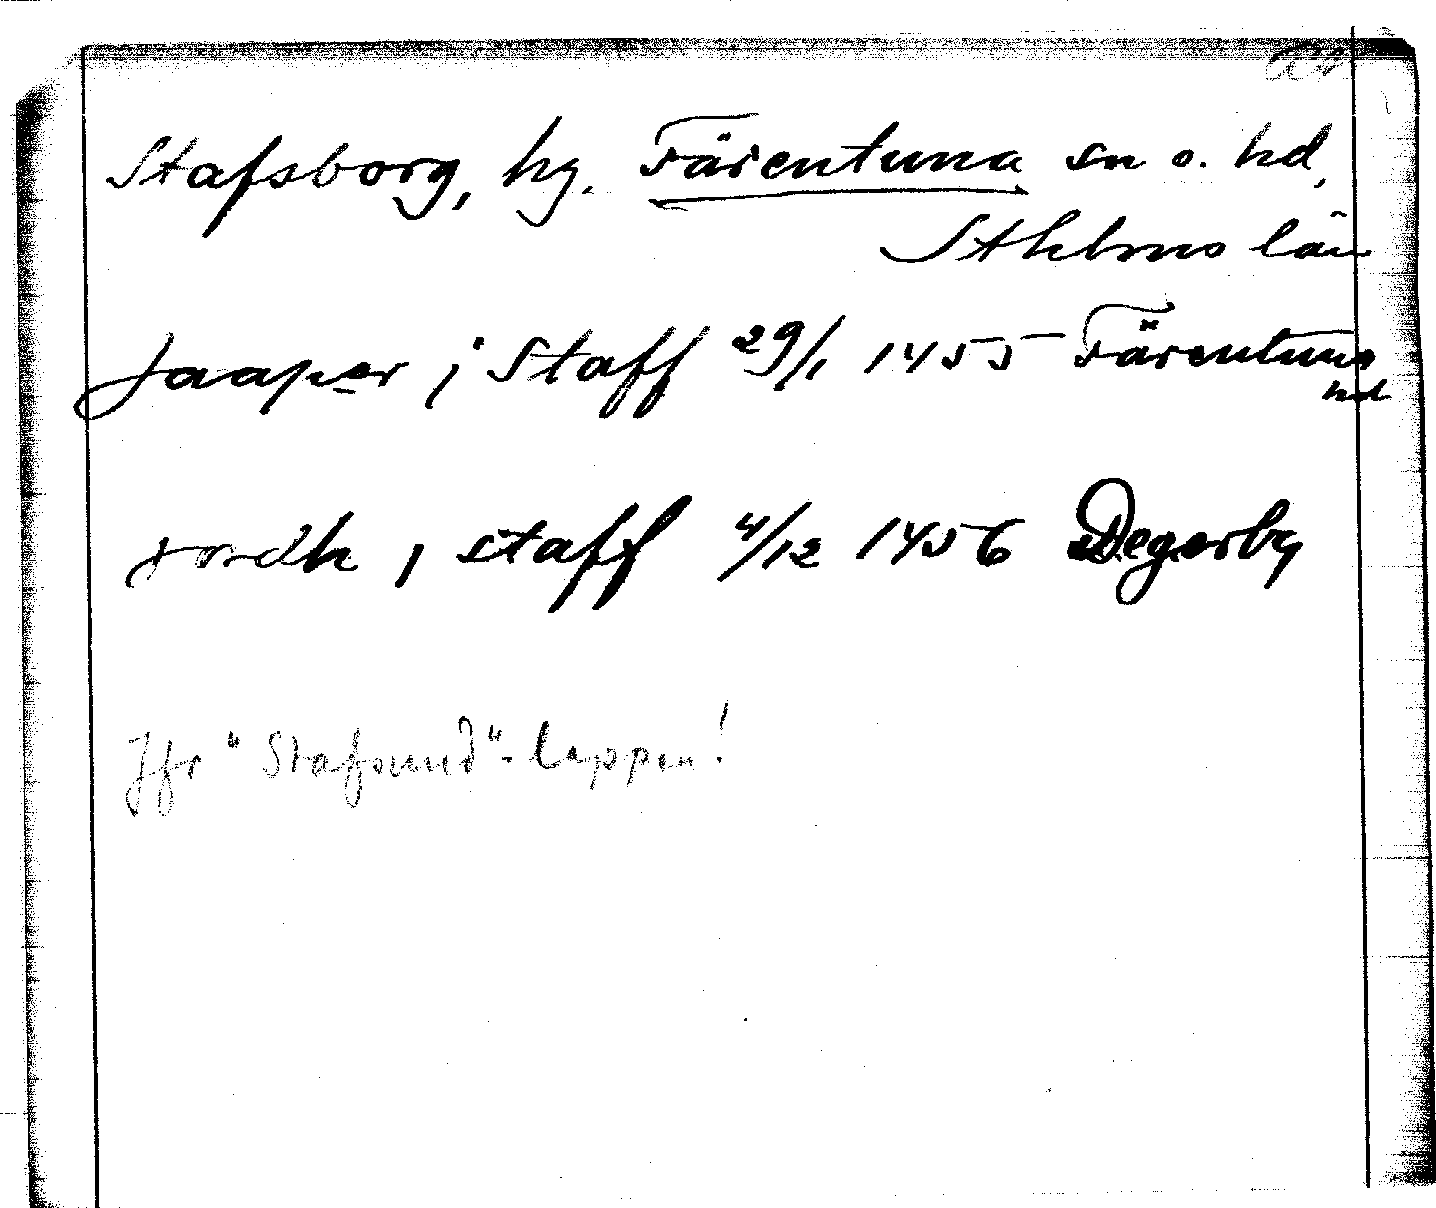 Stafsborg, hg. Färentuna sn o. hd,
Sthlms län
Jaaper j Staff 29/1 1455 Färentuna
hd
jordh j staff 4/12 1456 Degerby
Jfr "Stafsund"-lappen!